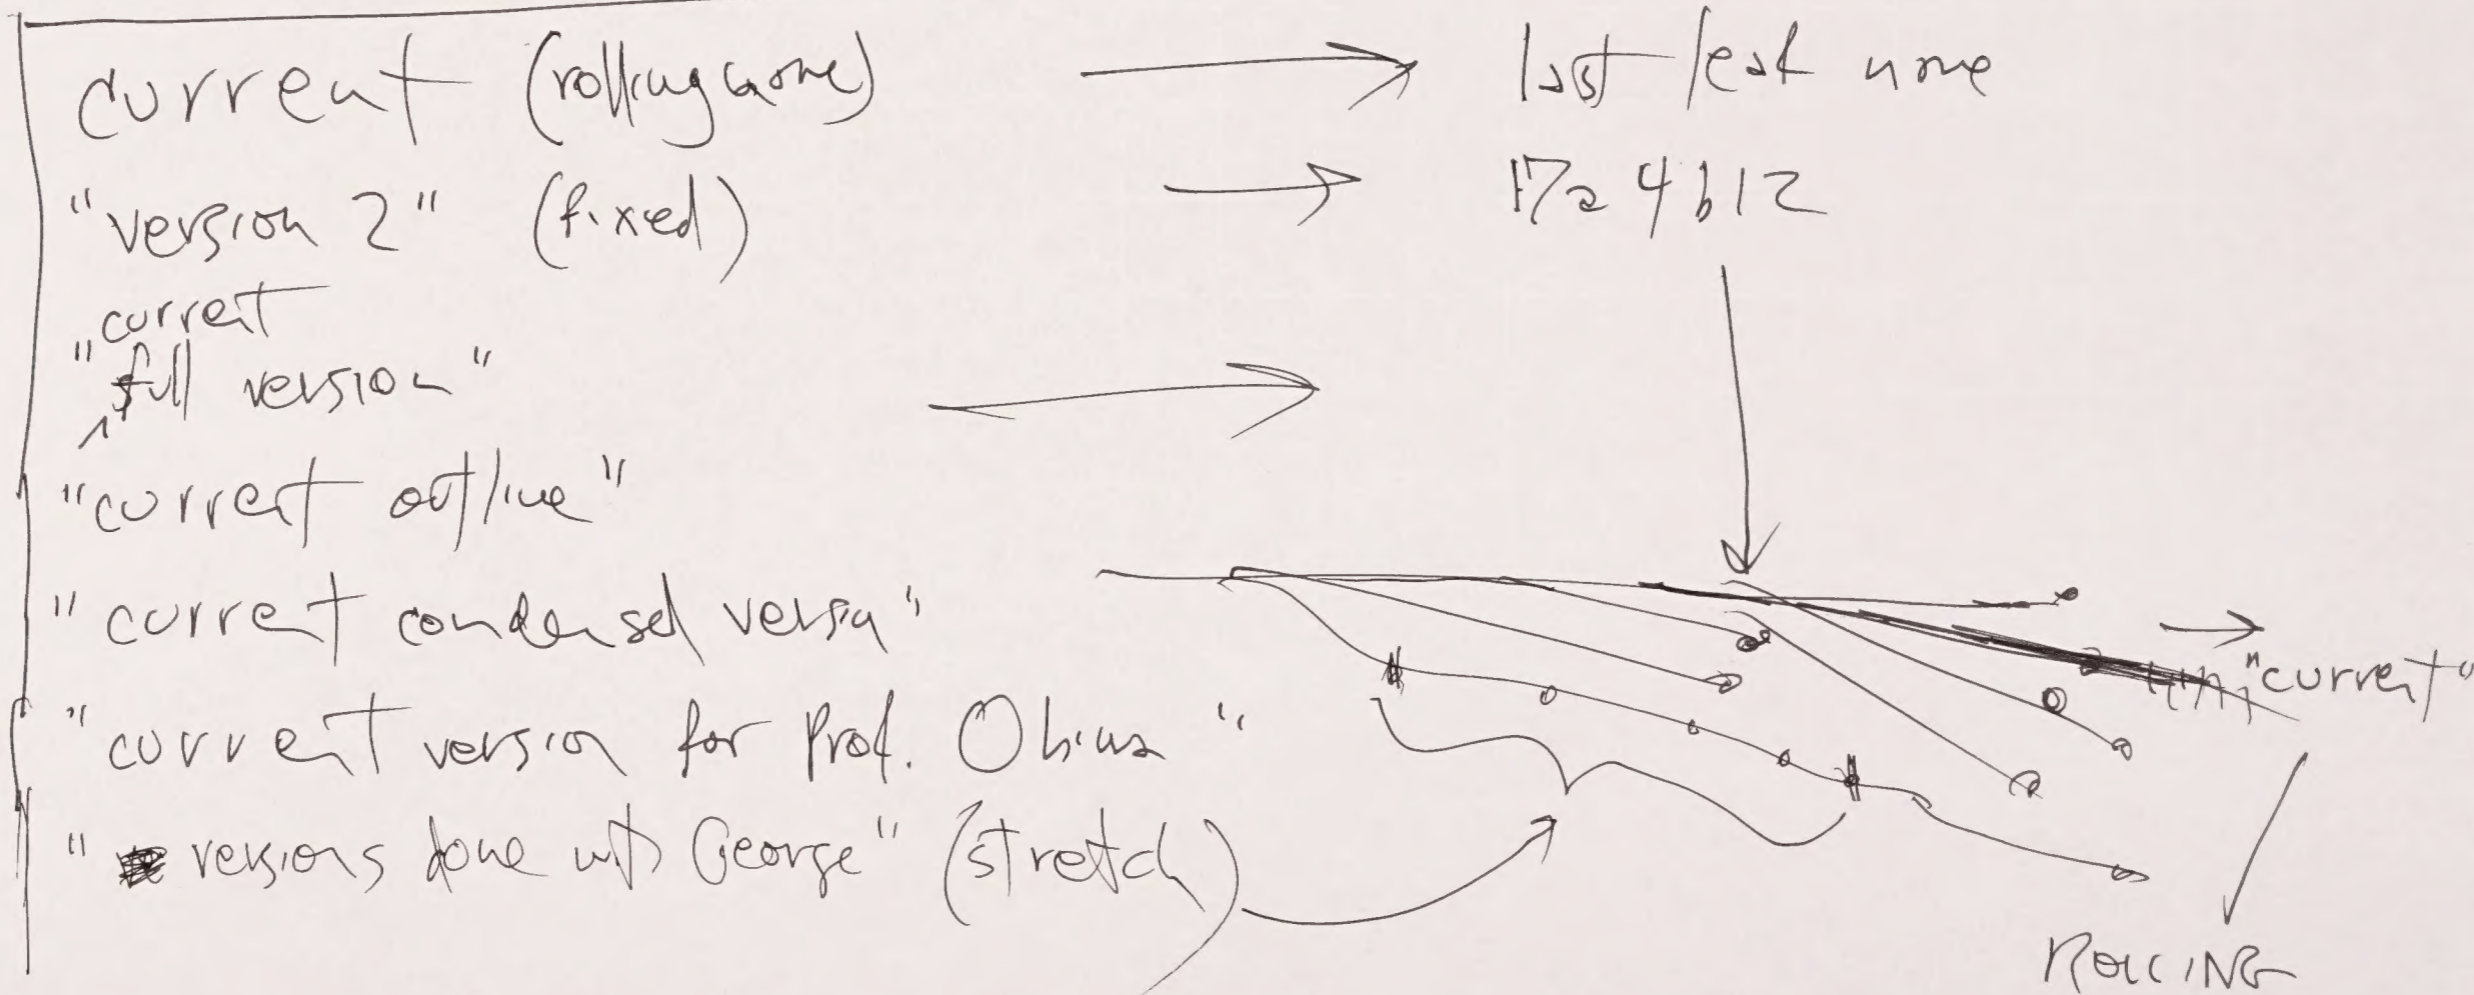 current (rolling name) last leaf name
"version 2" (fixed) 17a4b12
current
"full version"
"current outline"
"current condensed versn"
"current"
"current version for Prof. "
"versions done with George" (stretch)
ROLLING